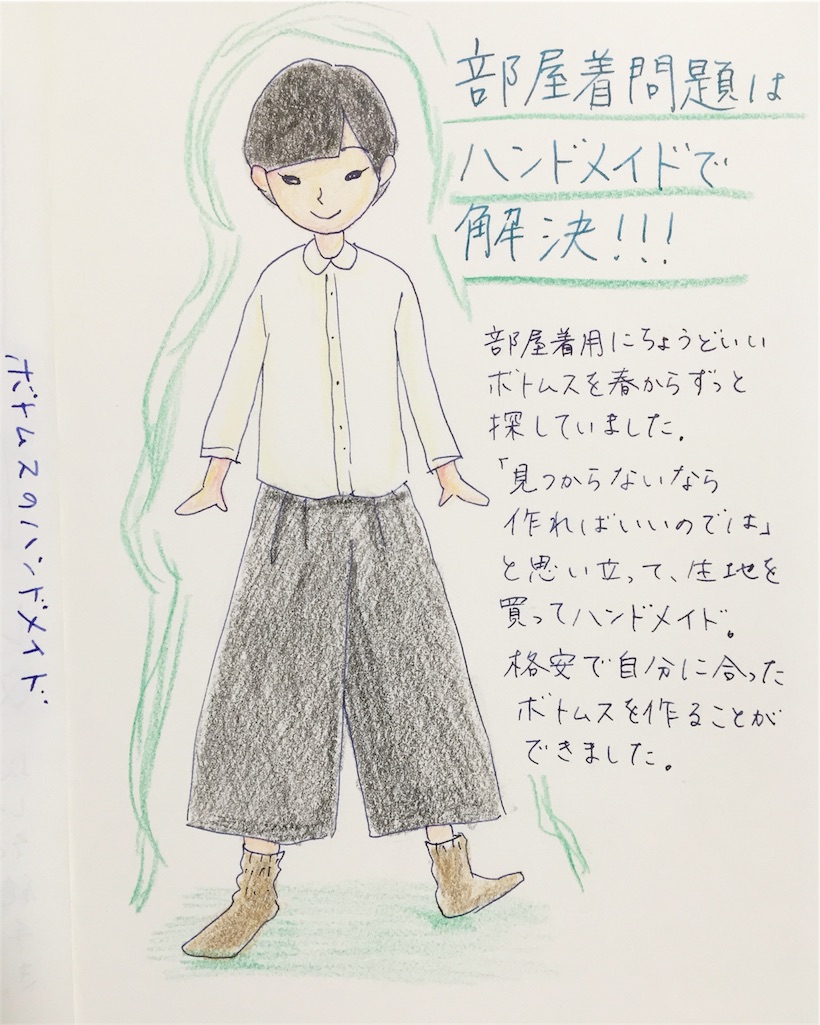 部屋着問題は
ハンドメイドで
解決!!!
部屋着用にちょうどいい
ボトムスを春からずっと
探していました。
「見つからないなら
作ればいいのでは」
と思い立って、生地を
買ってハンドメイド。
格安で自分に合った
ボトムスを作ることが
できました。
ボトムスのハンドメイド